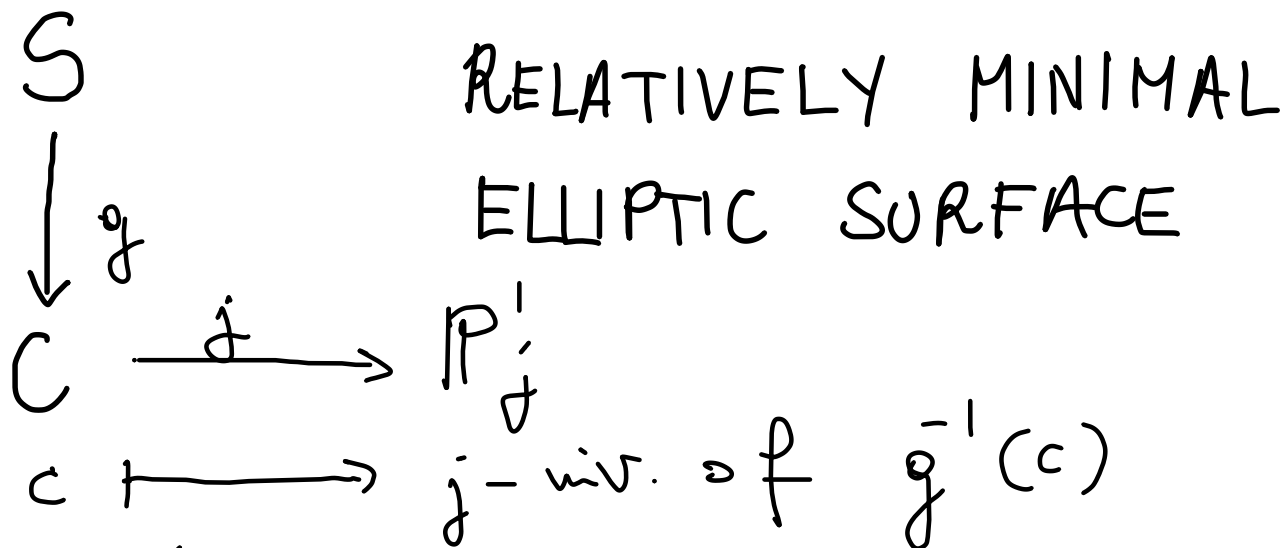 S RELATIVELY MINIMAL
g ELLIPTIC SURFACE
C j ℙ¹ⱼ
c ↦ j-inv. of g⁻¹(c)